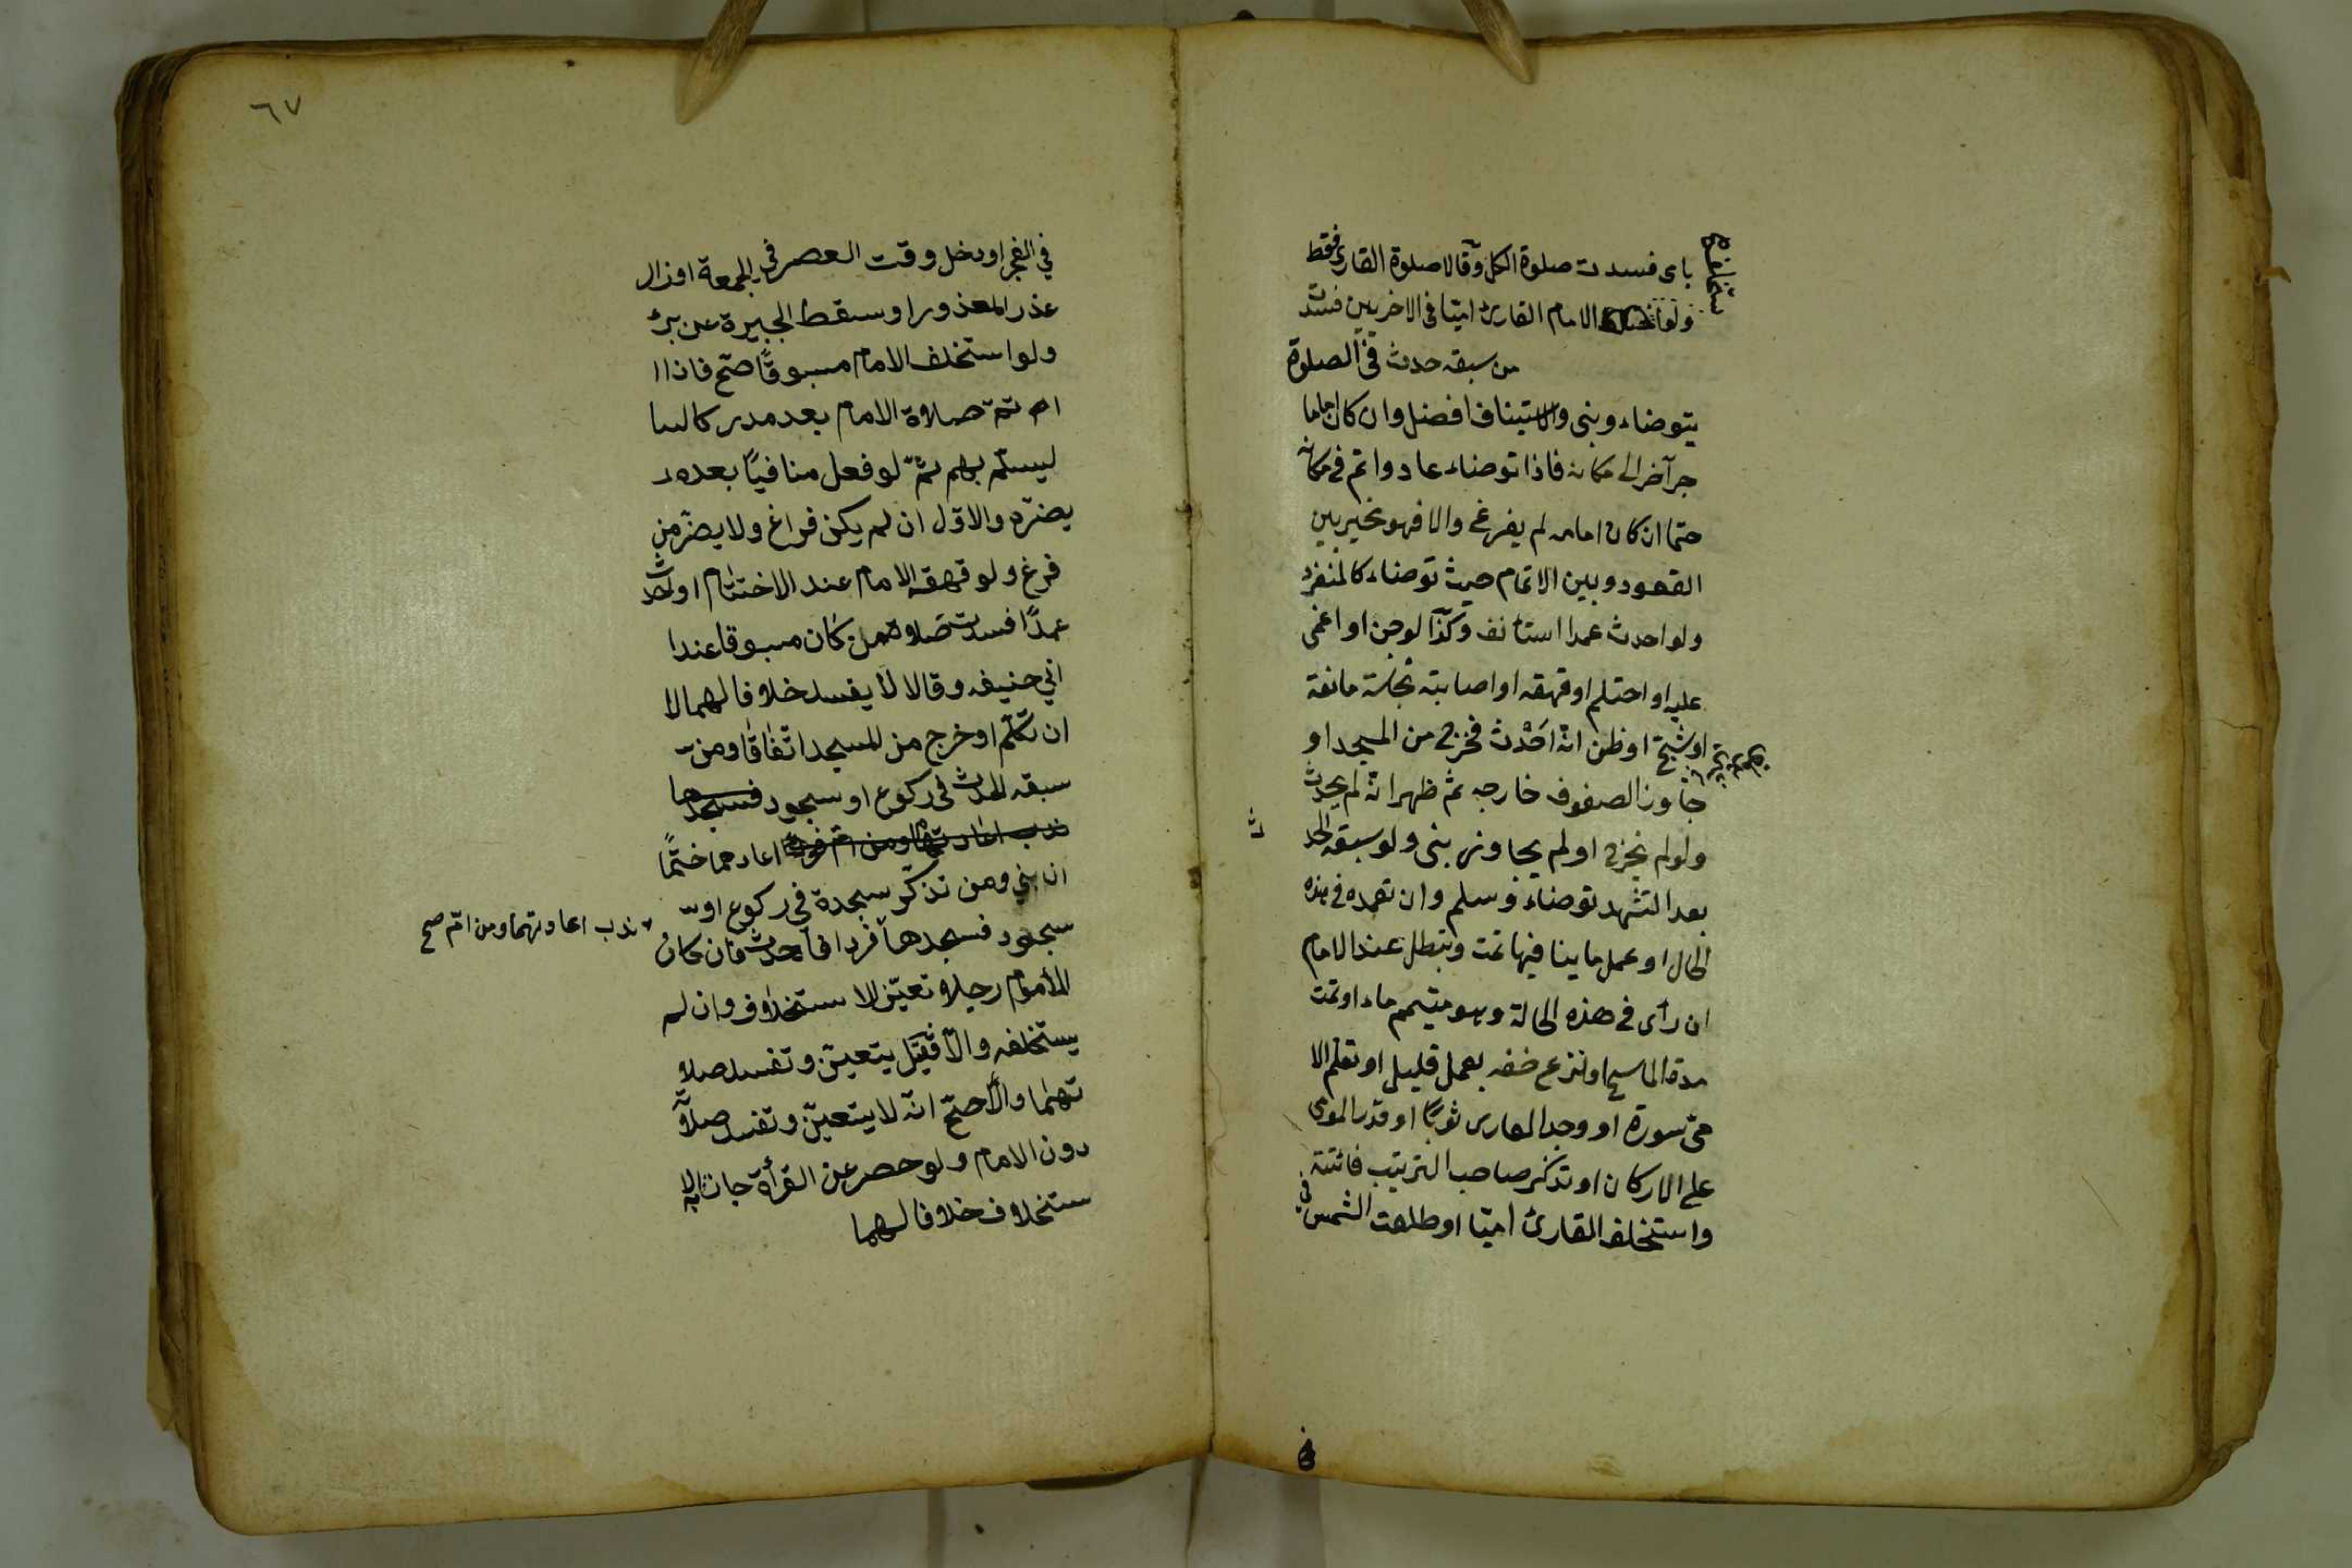 باى فسدت صلوة الكل وقالا صلوة القارى فقط
ولو الامام القارئ اميّا فى الاخريين فسدت
من سبقه حدث فى الصلوة
يتوضاء وبنى والاستيناف افضل وان كان اماما
جر آخر الى مكانه فاذا توضاء عاد واتم فى مكانه
حتما ان كان امامه لم يفرغ والا فهو مخير بين
القعود وبين الاتمام حيث توضاء كالمنفرد
ولو احدث عمدا استأنف وكذا لو جن او اغمى
عليه او احتلم او قهقه او اصابته نجاسة مانعة
او شج او ظن انه احدث فخرج من المسجد او
جاوز الصفوف خارجه ثم ظهر انه لم يحدث
ولو لم يخرج او لم يجاوز بنى ولو سبقه الحد
ث
بعد التشهد توضاء وسلم وان تعمده فى هذه
الحال او عمل ما ينافيها تمت وتبطل عند الامام
ان رأى فى هذه الحالة وهو متيمم ماء او تمت
مدة الماسح او نزع خفه بعمل قليل او تعلم الا
مى سورة او وجد العارى ثوبا او قدر المومى
على الاركان او تذكر صاحب الترتيب فائتة
واستخلف القارئ اميّا او طلعت الشمس
فى
٦٧
في الفجر او دخل وقت العصر في الجمعة او زال
عذر المعذور او سقط الجبيرة عن برئ
ولو استخلف الامام مسبوقًا صحّ فاذا ا
صلاة الامام
ليسلّم بهم ثمّ لو فعل منافيًا بعده
يضرّه والاوّل ان لم يكن فراغ ولا يضرّ من
فرغ ولو قهقه الامام عند الاختتام او احدث
عمدًا فسدت صلاة من كان مسبوقا عند ا
بي حنيفه وقالا لا يفسد خلافا لهما لا
ان تكلّم او خرج من المسجد اتّفاقا ومن
سبقه الحدث فى ركوع او سجود فسجدها
ندب اعادتهما ومن امّ اعادهما حتمًا
ان بني ومن تذكّر سجدة في ركوع او
ندب اعادتهما ومن امّ صح
سجود فسجدها فردا فاحدث فان كان
المأموم رجلا تعيّن للاستخلاف وان لم
يستخلفه والّا فقيل يتعيّن وتفسد صلا
تهما والأصحّ انّه لا يتعيّن وتفسد صلاته
دون الامام ولو حصر عن القرأة جاز له الا
ستخلاف خلافا لهما